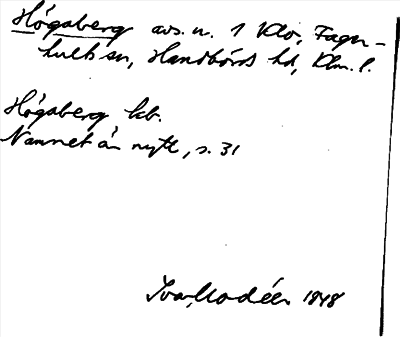 Högaberg avs. u. 1 Klo, Fager-
hults sn, Handbörds hd, Klm. l.
Högaberg kb.
Namnet är nytt, s. 31
Ivar Modéer 1948